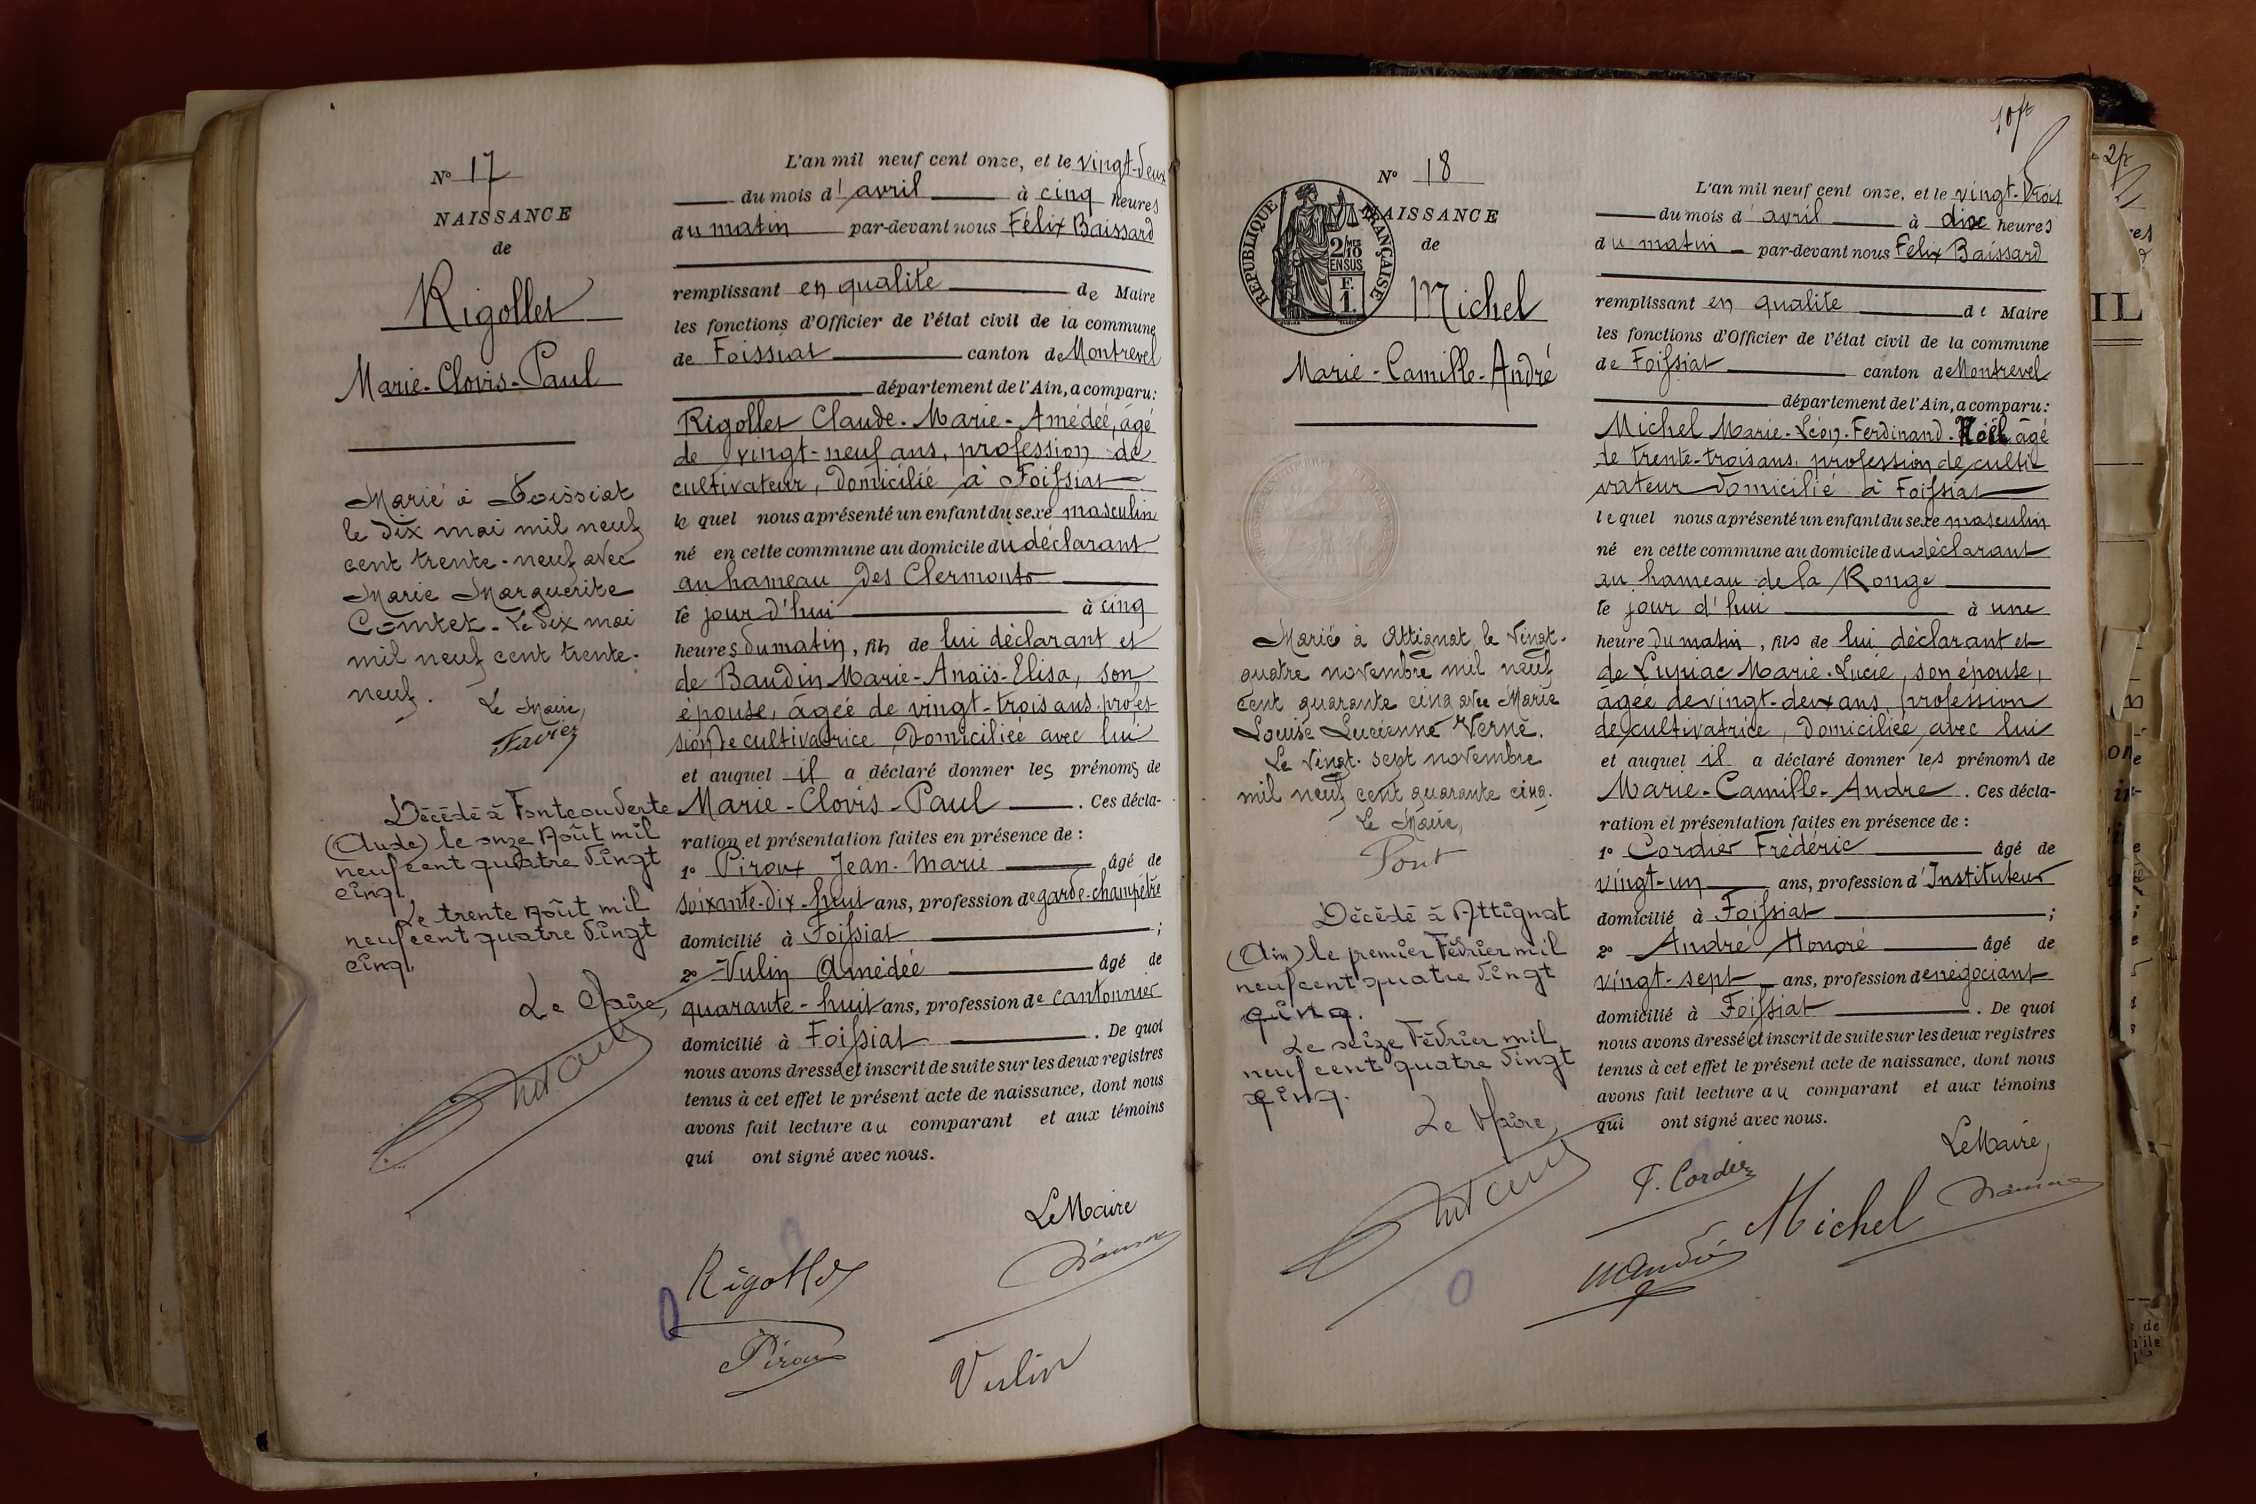 N° 17
NAISSANCE
de
Rigollet
Marie-Clovis-Paul
Marié à Foissiat
le dix mai mil neuf
cent trente-neuf avec
Marie Marguerite
Comtet. Le dix mai
mil neuf cent trente-
neuf.
Le Maire,
Favier
Décédé à Fonteouverte
(Aude) le onze Août mil
neuf cent quatre vingt
cinq.
Le trente Août mil
neuf cent quatre vingt
cinq.
Le Maire,
L'an mil neuf cent onze, et le vingt-deux
du mois d'avril à cinq heures
du matin par-devant nous Félix Baissard
remplissant en qualité de Maire
les fonctions d'Officier de l'état civil de la commune
de Foissiat canton de Montrevel
département de l'Ain, a comparu:
Rigollet Claude-Marie-Amédéé, âgé
de vingt-neuf ans, profession de
cultivateur, domicilié à Foissiat
le quel nous a présenté un enfant du sexe masculin
né en cette commune au domicile du déclarant
au hameau des Clermonts
ce jour d'hui à cinq
heures du matin, fils de lui déclarant et
de Baudin Marie-Anaïs-Elisa, son
épouse, âgée de vingt-trois ans, profes-
sion de cultivatrice, domiciliée avec lui
et auquel il a déclaré donner les prénoms de
Marie-Clovis-Paul. Ces décla-
ration et présentation faites en présence de :
1° Piroux Jean-Marie âgé de
soixante-dix-huit ans, profession de garde-champêtre
domicilié à Foissiat ;
2° Vulin Amédée âgé de
quarante-huit ans, profession de cantonnier
domicilié à Foissiat. De quoi
nous avons dressé et inscrit de suite sur les deux registres
tenus à cet effet le présent acte de naissance, dont nous
avons fait lecture au comparant et aux témoins
qui ont signé avec nous.
Le Maire
Rigollet
Piroux
Vulin
10 f
N° 18
RÉPUBLIQUE FRANÇAISE
2/10 MES
EN SUS
F.
1.
NAISSANCE
de
Michel
Marie-Camille-André
Marié à Attignat le vingt-
quatre novembre mil neuf
cent quarante cinq avec Marie
Louise Lucienne Verne.
Le vingt-sept novembre
mil neuf cent quarante cinq.
Le Maire,
Pont
Décédé à Attignat
(Ain) le premier Février mil
neuf cent quatre vingt
cinq.
Le seize Février mil
neuf cent quatre vingt
cinq.
Le Maire,
L'an mil neuf cent onze, et le vingt-trois
du mois d'avril à dix heures
du matin par-devant nous Félix Baissard
remplissant en qualité de Maire
les fonctions d'Officier de l'état civil de la commune
de Foissiat canton de Montrevel
département de l'Ain, a comparu:
Michel Marie-Léon-Ferdinand-Noël âgé
de trente-trois ans, profession de culti-
vateur domicilié à Foissiat
le quel nous a présenté un enfant du sexe masculin
né en cette commune au domicile du déclarant
au hameau de la Ronge
ce jour d'hui à une
heure du matin, fils de lui déclarant et
de Marie-Lucie, son épouse,
âgée de vingt-deux ans, profession
de cultivatrice, domiciliée avec lui
et auquel il a déclaré donner les prénoms de
Marie-Camille-André. Ces décla-
ration et présentation faites en présence de :
1° Cordier Frédéric âgé de
vingt-un ans, profession d'Instituteur
domicilié à Foissiat ;
2° André Honoré âgé de
vingt-sept ans, profession de négociant
domicilié à Foissiat. De quoi
nous avons dressé et inscrit de suite sur les deux registres
tenus à cet effet le présent acte de naissance, dont nous
avons fait lecture au comparant et aux témoins
qui ont signé avec nous.
Le Maire,
F. Cordier
Michel
IL